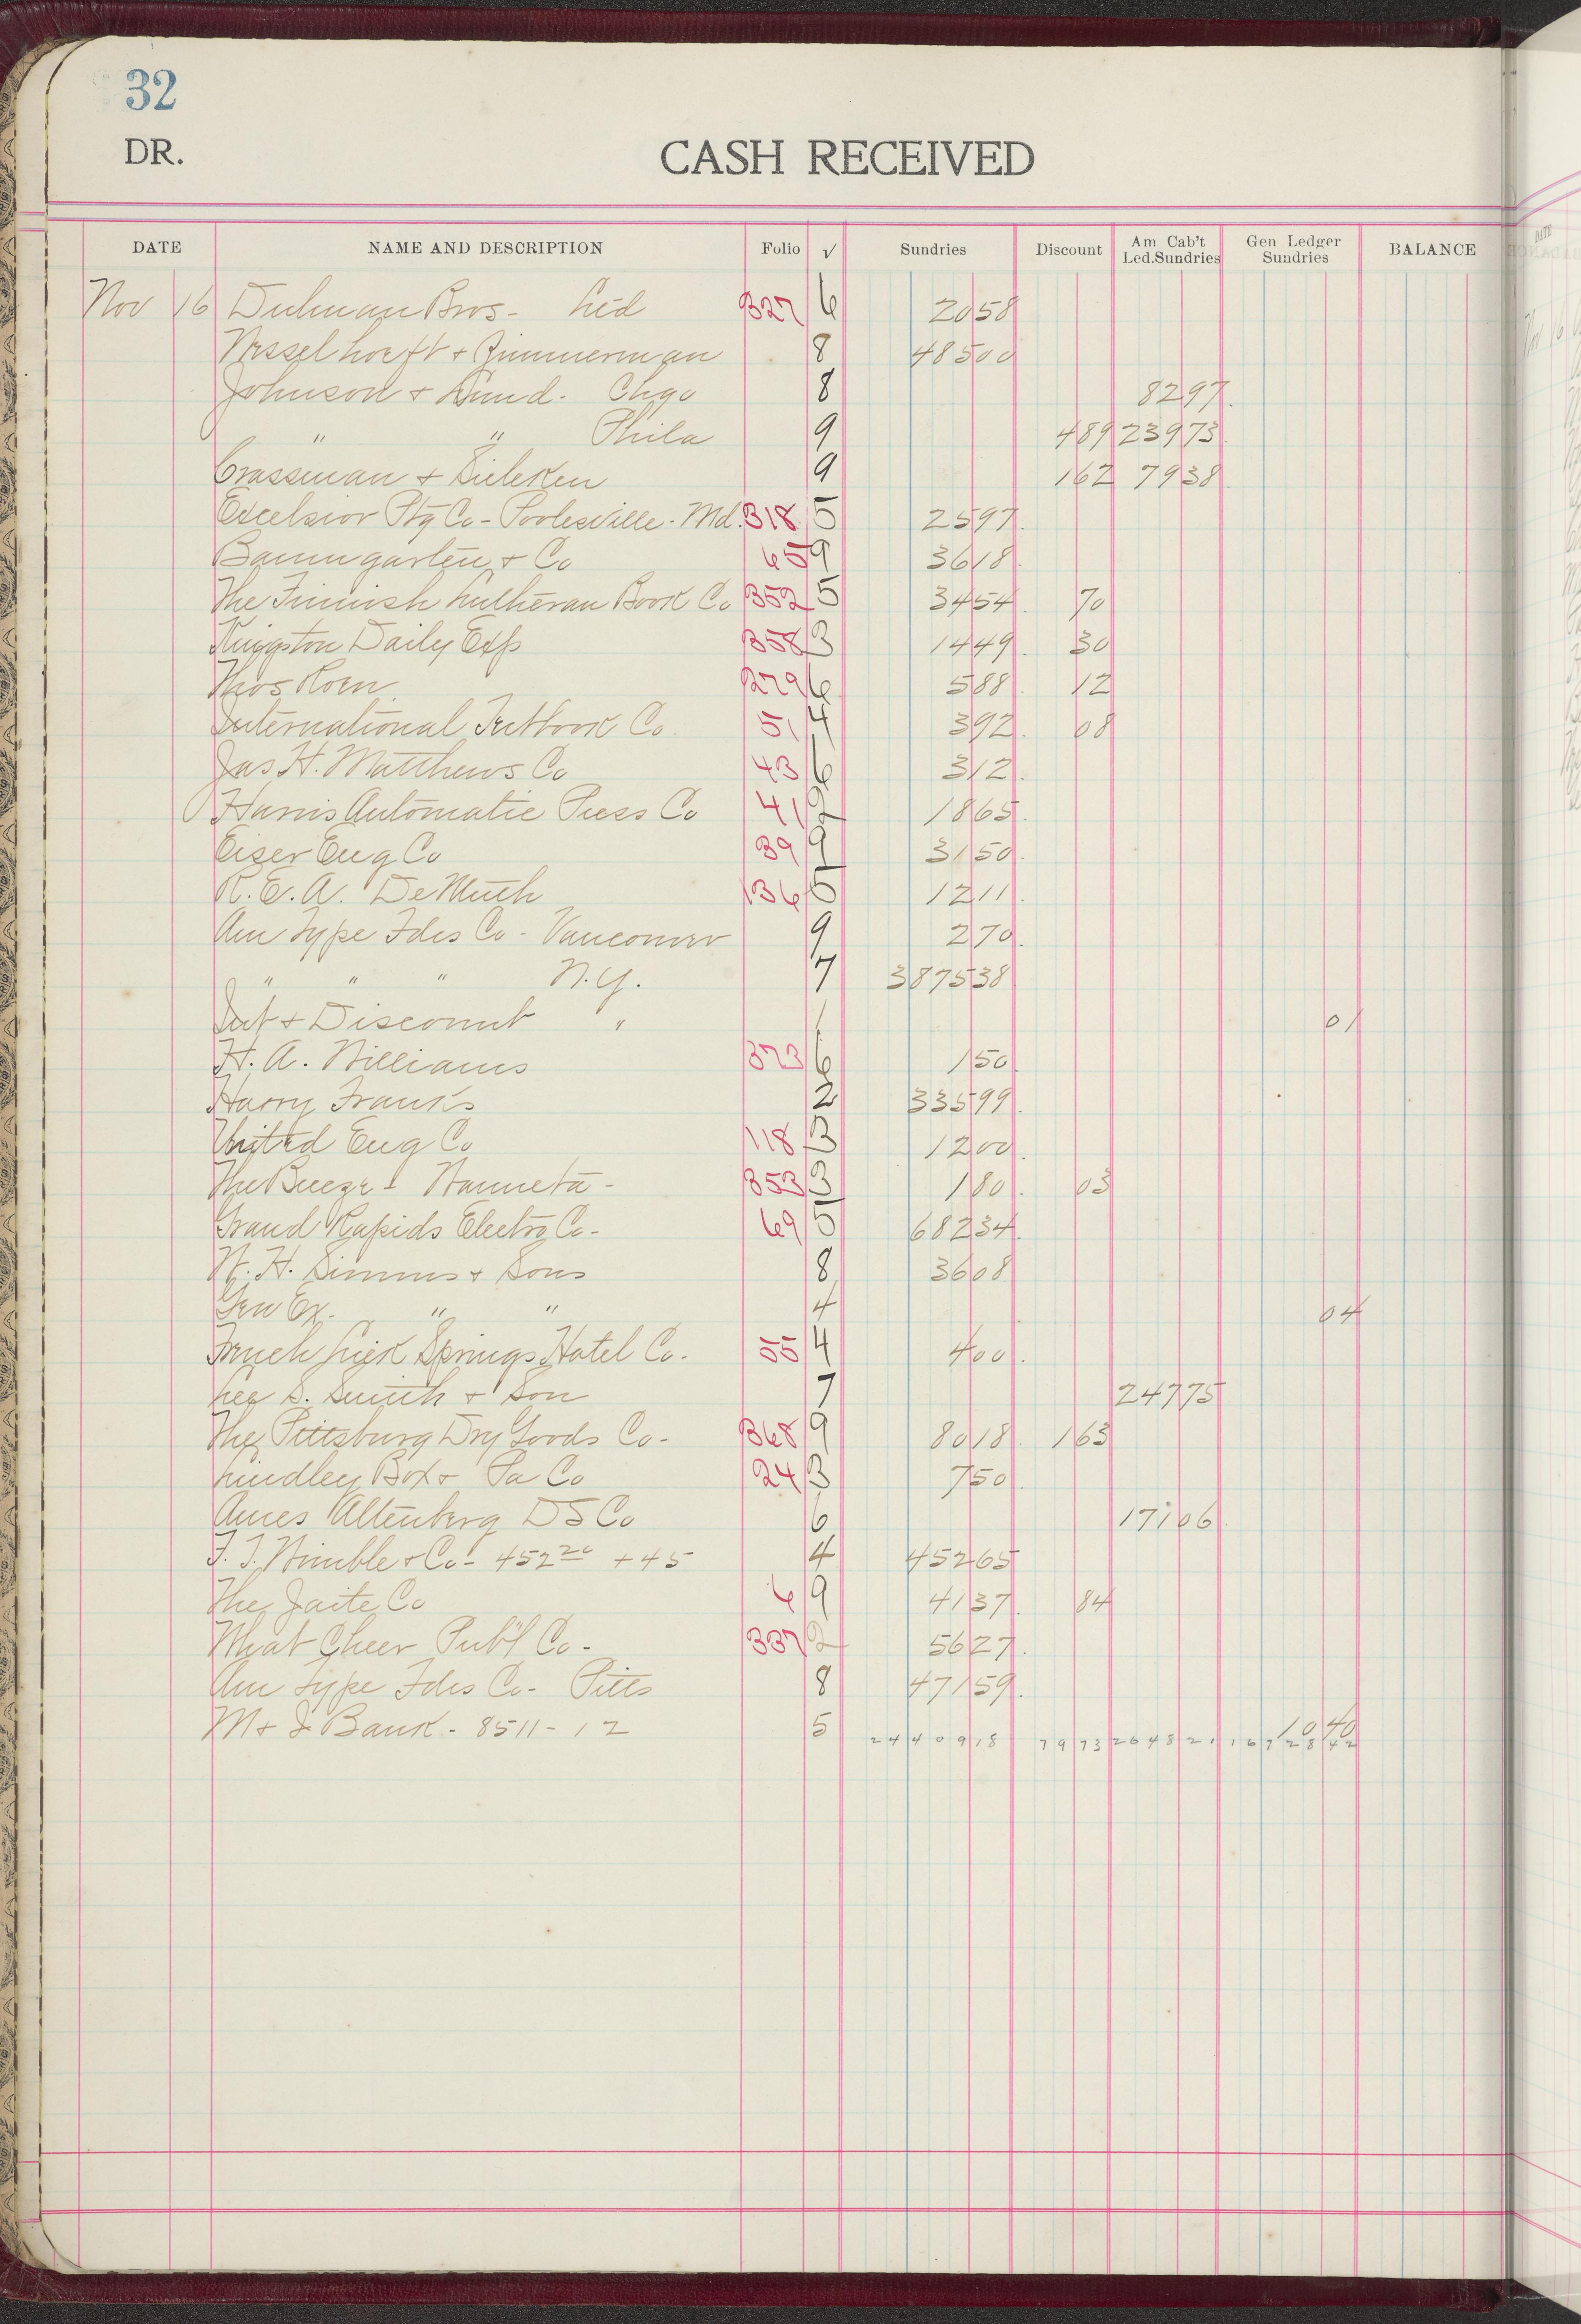 32
DR.
CASH RECEIVED
DATE NAME AND DESCRIPTION Folio √ Sundries Discount Am Cab't Led.Sundries Gen Ledger Sundries BALANCE
Nov 16 Bros - Ltd 327 6 20 58
Wesselhoeft + Zimmerman 8 485 00
Johnson + Lund - Chgo 8 82 97
" " Phila 9 4 89 239 73
Crassman + Sieleken 9 1 62 79 38
Excelsior Ptg Co - Poolesville - Md. 318 5 25 97
Baumgarten + Co 65 9 36 18
The Finnish Lutheran Book Co 352 5 34 54 70
Kingston Daily Exp 358 3 14 49 30
Thos Koen 279 6 5 88 12
International Textbook Co 51 4 3 92 08
Jas H. Matthews Co 43 6 3 12
Harris Automatic Press Co 41 2 18 65
Eiser Eng Co 39 9 31 50
R. E. A. DeMuth 136 5 12 11
Am Type Fdrs Co - Vancouver 9 2 70
" " " N.Y. 7 3875 38
Int + Discount " 1 01
H. A. Williams 373 6 1 50
Harry Franks 2 335 99
United Eng Co 118 3 12 00
The Breeze - 353 3 1 80 03
Grand Rapids Electro Co - 69 5 682 34
W. H. Simms + Sons 8 36 08
Gen Ex. " " 4 04
French Lick Springs Hotel Co. 55 4 4 00
Lee S. Smith + Son 7 247 75
The Pittsburg Dry Goods Co - 368 9 80 18 1 63
Lindley Box + Pa Co 24 3 7 50
Ames Altenberg D S Co 6 171 06
F. J. Wimble + Co - 452 20 + 45 4 452 65
The Jaite Co 6 9 41 37 84
What Cheer Pub'l Co - 337 2 56 27
Am Type Fdrs Co - Pitts 8 471 59
M + J Bank - 8511 - 12 5 10 40
24409 18 79 73 2648 21 16728 42